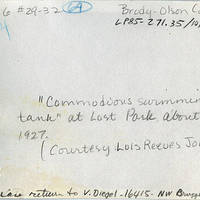 6 #29-32 A Brady-Olson Co
4 LP85-271.35/10
"Commodious swimmin
tank" at Lost Park about
1927.
(Courtesy Lois Reeves Jo
return to V. Diegel-16415-NW